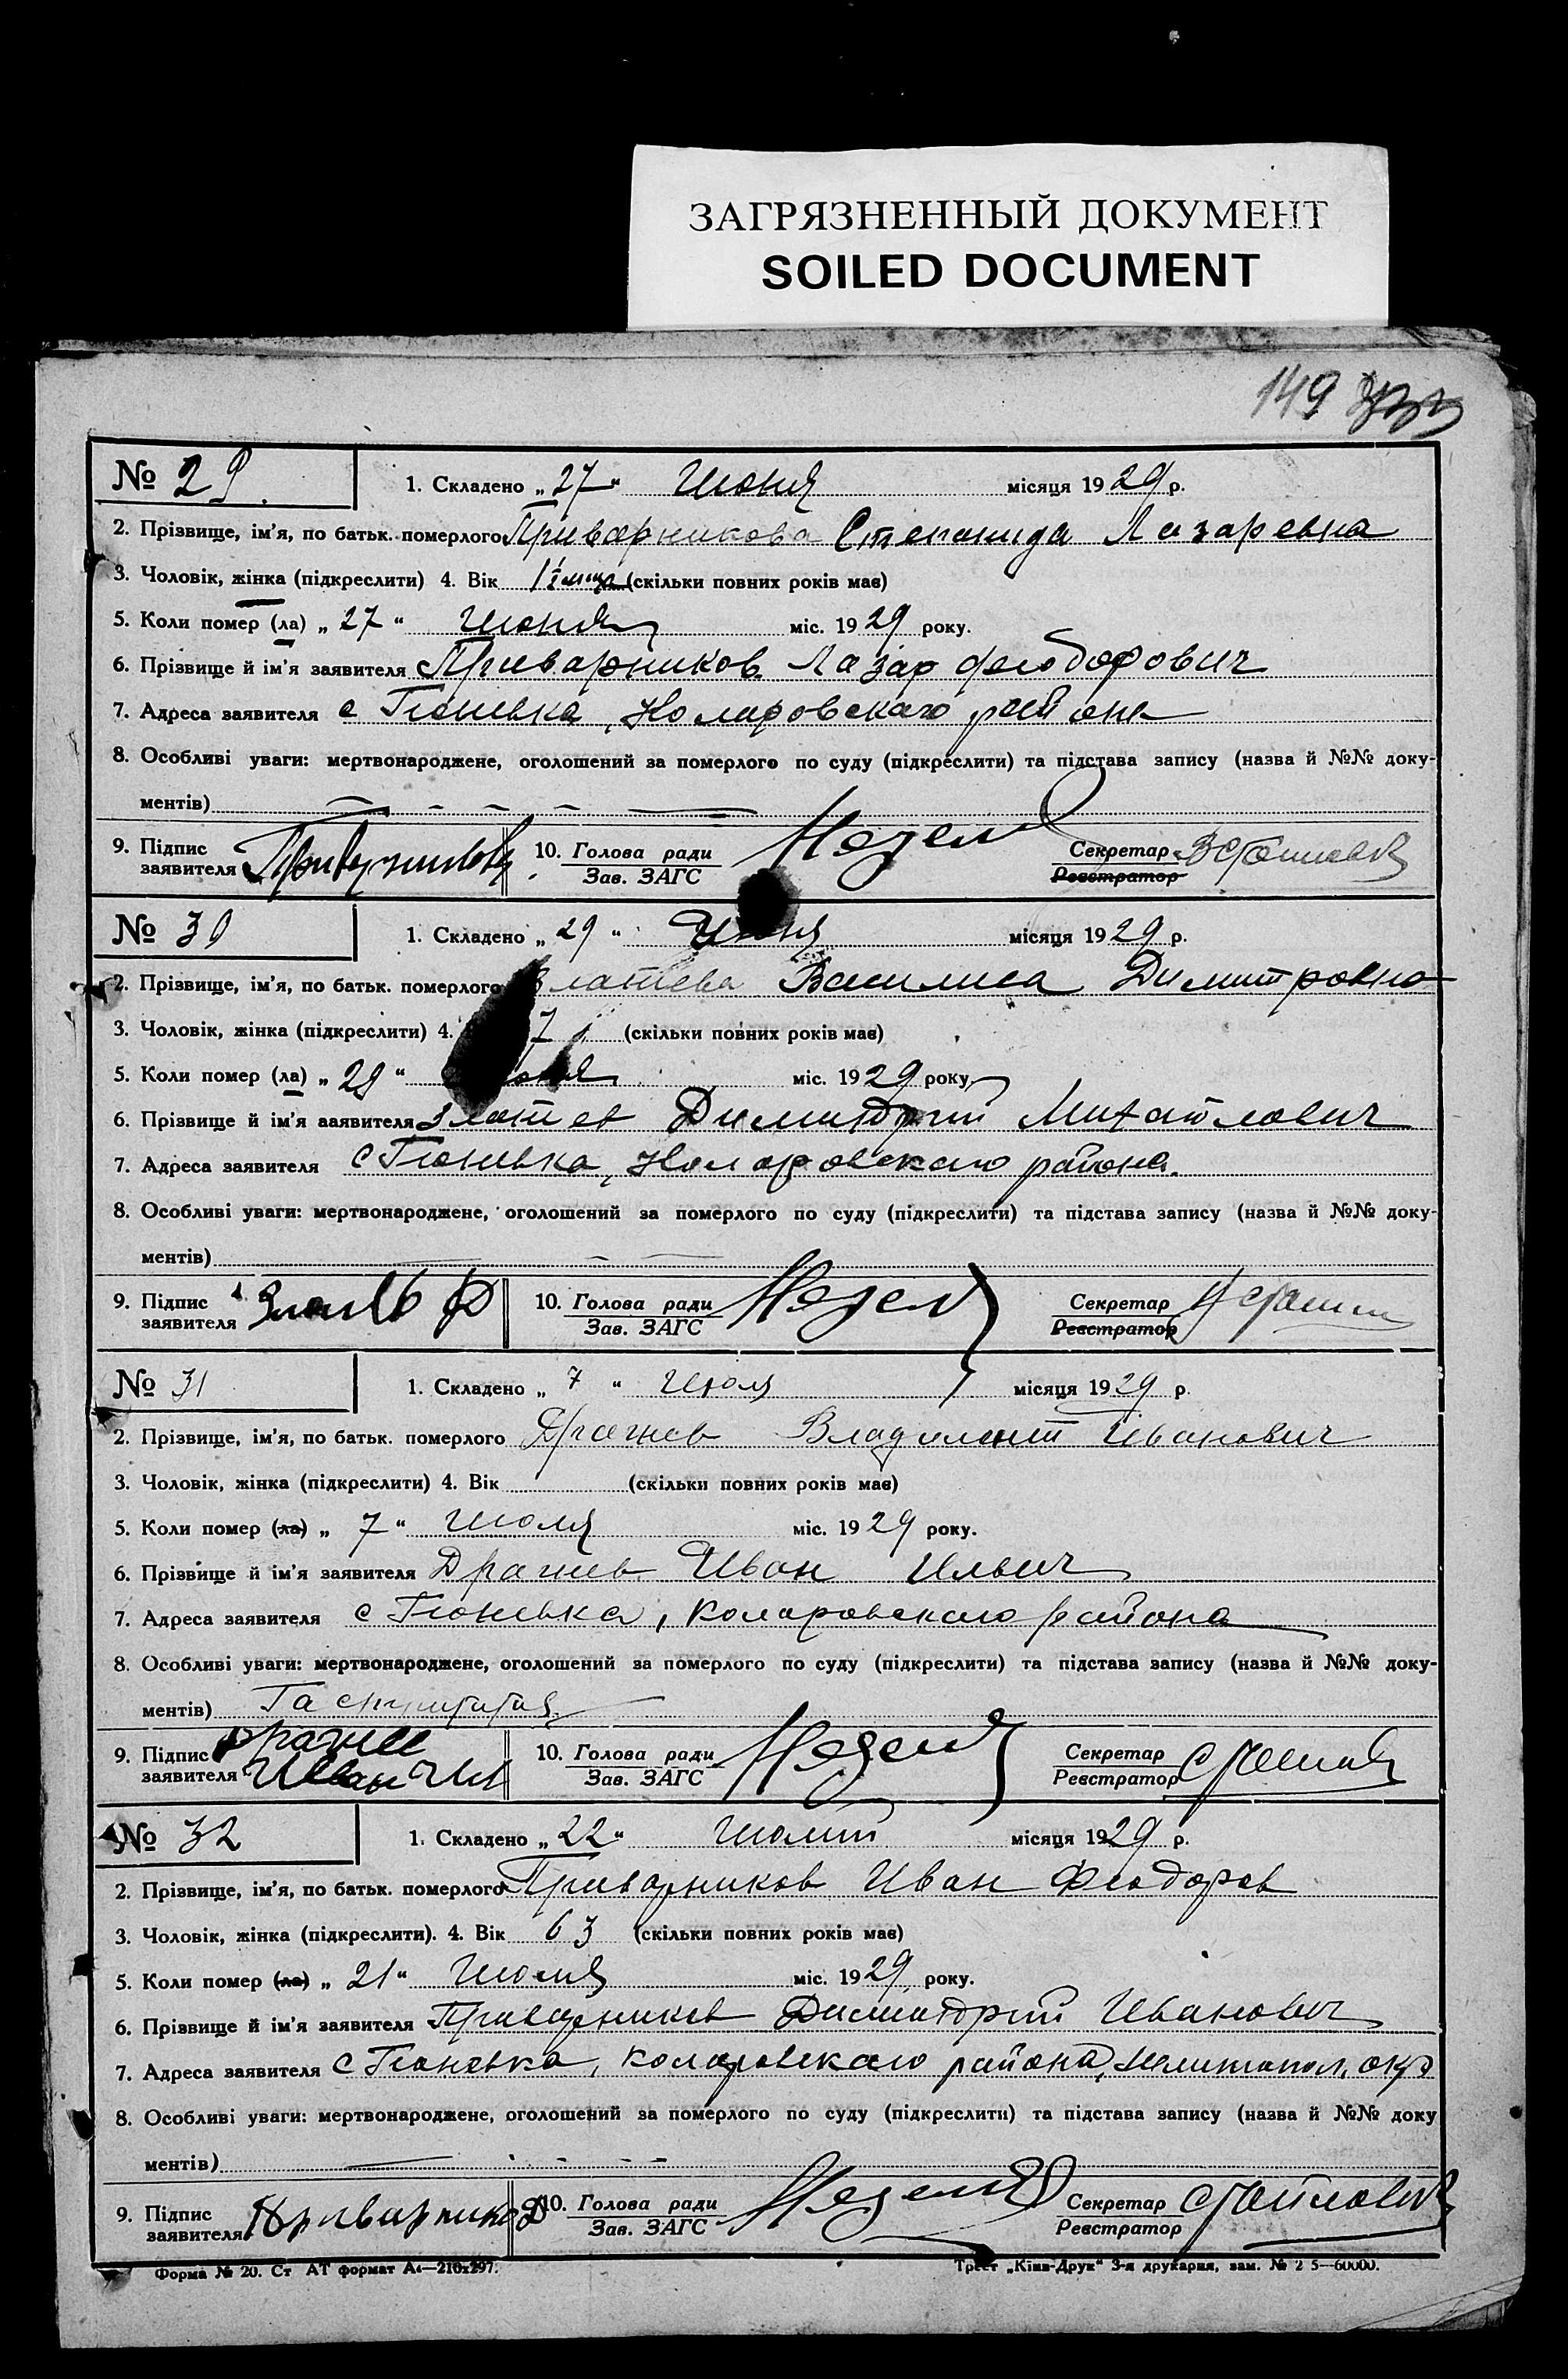 ЗАГРЯЗНЕННЫЙ ДОКУМЕНТ
SOILED DOCUMENT
149
№ 29. 1. Складено „27“ Июня місяця 1929 р.
2. Прізвище, ім'я, по батьк. померлого Приварникова Степанида Лазаревна
3. Чоловік, жінка (підкреслити) 4. Вік (скільки повних років має)
5. Коли помер (ла) „27“ Июня міс. 1929 року.
6. Прізвище й ім'я заявителя Приварников Лазар Феодорович
7. Адреса заявителя с Гюневка, Коларовскаго района
8. Особливі уваги: мертвонароджене, оголошений за померлого по суду (підкреслити) та підстава запису (назва й №№ доку-
ментів)
9. Підпис заявителя 10. Голова ради Зав. ЗАГС Секретар Реєстратор
№ 30 1. Складено „29“ Июня місяця 1929 р.
2. Прізвище, ім'я, по батьк. померлого Златева Василиса Димитровна
3. Чоловік, жінка (підкреслити) 4. (скільки повних років має)
5. Коли помер (ла) „29“ міс. 1929 року
6. Прізвище й ім'я заявителя Златев Димитрий Михайлович
7. Адреса заявителя с Гюневка, Коларовскаго района.
8. Особливі уваги: мертвонароджене, оголошений за померлого по суду (підкреслити) та підстава запису (назва й №№ доку-
ментів)
9. Підпис заявителя Златев Д 10. Голова ради Зав. ЗАГС Секретар Реєстратор
№ 31 1. Складено „7“ Июля місяця 1929 р.
2. Прізвище, ім'я, по батьк. померлого Драгнев Владимит Иванович
3. Чоловік, жінка (підкреслити) 4. Вік (скільки повних років має)
5. Коли помер (ла) „7“ Июля міс. 1929 року.
6. Прізвище й ім'я заявителя Драгнев Иван Ильич
7. Адреса заявителя с Гюневка, Коларовскаго района
8. Особливі уваги: мертвонароджене, оголошений за померлого по суду (підкреслити) та підстава запису (назва й №№ доку-
ментів)
9. Підпис заявителя Иван 10. Голова ради Зав. ЗАГС Секретар Реєстратор
№ 32 1. Складено „22“ місяця 1929 р.
2. Прізвище, ім'я, по батьк. померлого Приварников Иван Феодоров
3. Чоловік, жінка (підкреслити). 4. Вік 63 (скільки повних років має)
5. Коли помер (ла) „21“ Июля міс. 1929 року.
6. Прізвище й ім'я заявителя Приварников Димитрий Иванович
7. Адреса заявителя с Гюневка, Коларовскаго района, Мелитопол. окр
8. Особливі уваги: мертвонароджене, оголошений за померлого по суду (підкреслити) та підстава запису (назва й №№ доку
ментів)
9. Підпис заявителя 10. Голова ради Зав. ЗАГС Секретар Реєстратор
Форма № 20. Ст АТ формат А4—210x297. Трест „Київ-Друк“ 3-я друкарня, зам. № 2 5—60000.